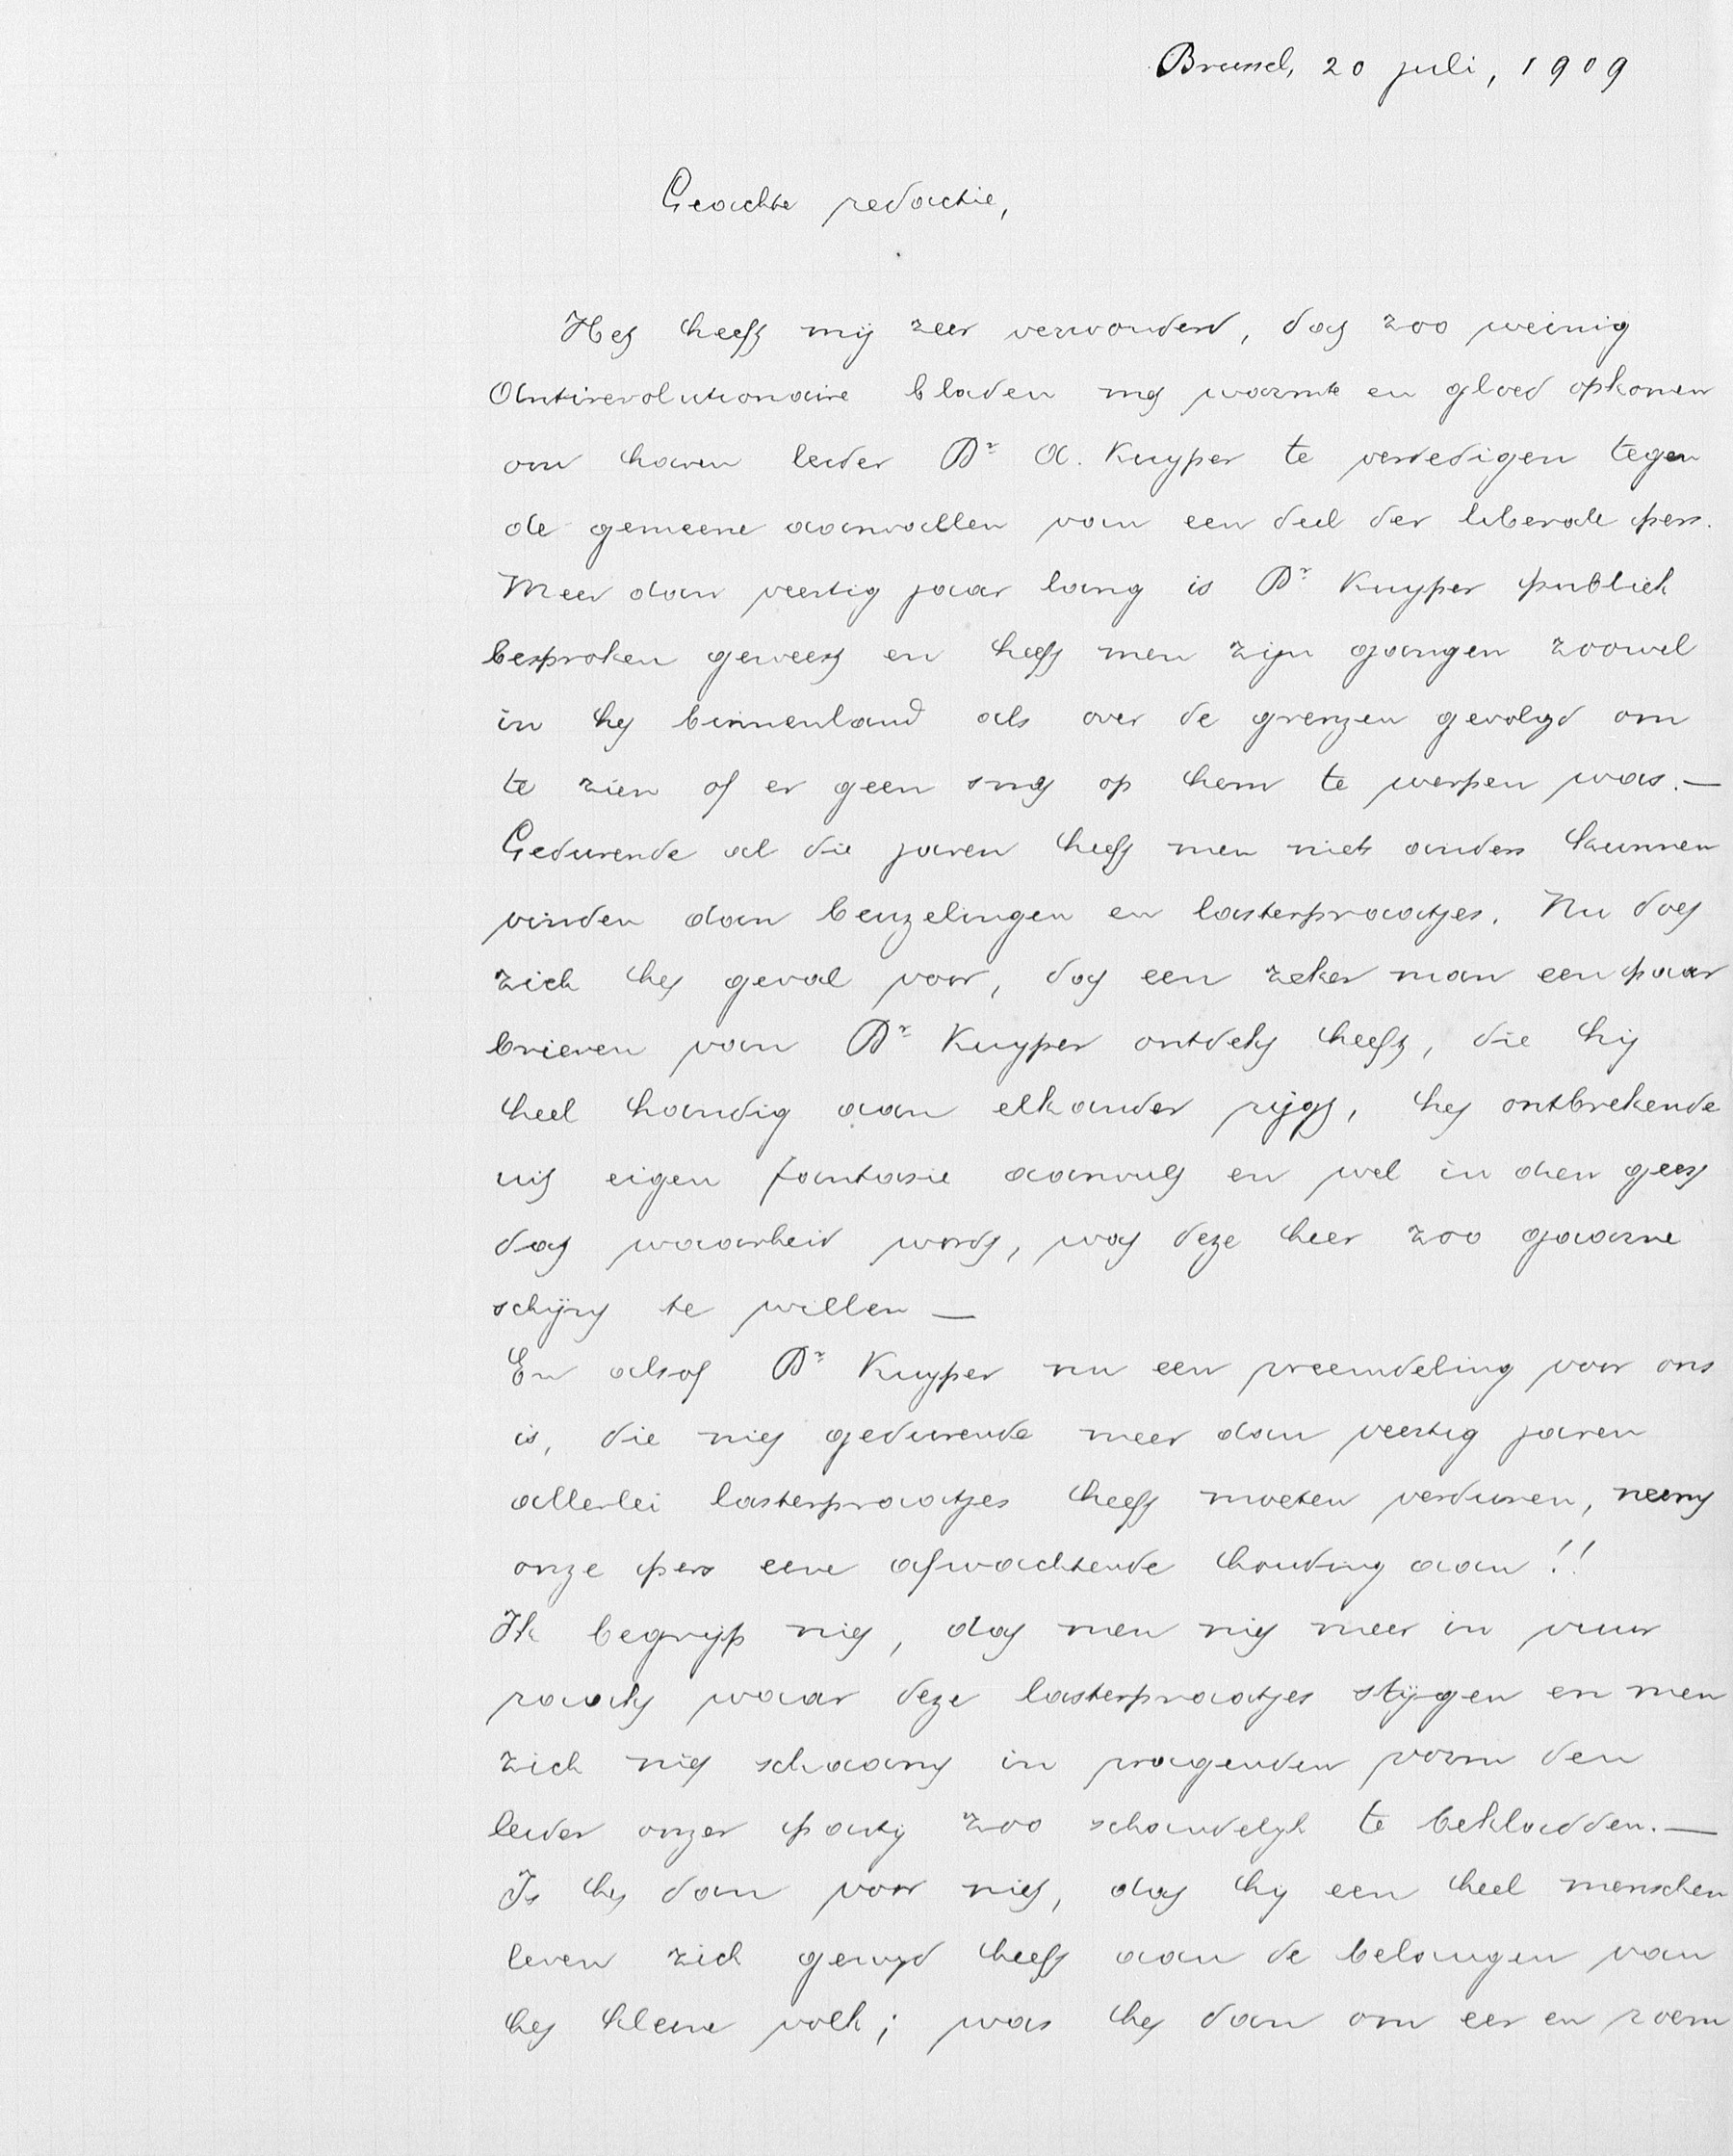 Brussel, 20 juli, 1909
Geachte redactie,
Het heeft mij zeer verwonderd, dat zoo weinig
Antirevolutionaire bladen met warmte en gloed opkomen
om haren leider Dr A. Kuyper te verdedigen tegen
de gemeene aanvallen van een deel der liberale pers.
Meer dan veertig jaar lang is Dr Kuyper publiek
besproken geweest en heeft men zijn gangen zoowel
in het binnenland als over de grenzen gevolgd om
te zien of er geen smet op hem te werpen was. —
Gedurende al die jaren heeft men niets anders kunnen
vinden dan beuzelingen en lasterpraatjes. Nu doet
zich het geval voor, dat een zeker man een paar
brieven van Dr Kuyper ontdekt heeft, die hij
heel handig aan elkander rijgt, het ontbrekende
uit eigen fantasie aanvult en wel in den geest
dat waarheid wordt, wat deze heer zoo gaarne
schijnt te willen —
En alsof Dr Kuyper nu een vreemdeling voor ons
is, die niet gedurende meer dan veertig jaren
allerlei lasterpraatjes heeft moeten verduren, neemt
onze pers eene afwachtende houding aan!!
Ik begrijp niet, dat men niet meer in vuur
raakt waar deze lasterpraatjes stijgen en men
zich niet schaamt in vragenden vorm den
leider onzer partij zoo schandelijk te bekladden. —
Is het dan voor niet, dat hij een heel menschen
leven zich gewijd heeft aan de belangen van
het kleine volk; was het dan om eer en roem